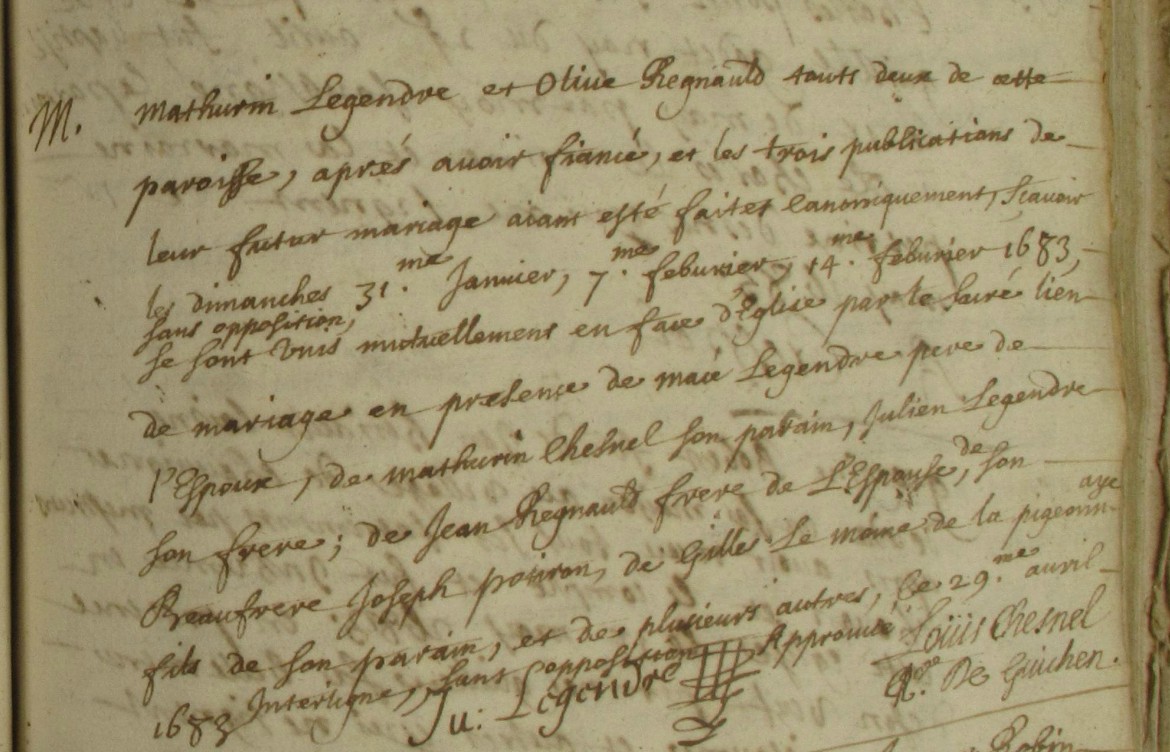 M. Mathurin Legendre et Olive Regnauld touts deux de cette
paroisse, aprés avoir fiancé, et les trois publications de
leur futur mariage aiant esté faites Canoniquement, scavoir
les dimanches 31.me Janvier, 7.me feburier, 14.me feburier 1683,
sans opposition,
se sont unis mutuellement en face d'Eglise par le sacré lien
de mariage en presence de macé Legendre pere de
l'Espoux, de mathurin Chesnel son parain, Julien Legendre
son frere; de Jean Regnauld frere de L'Espouse, de son
Beaufrere Joseph poiron, de Gilles Le moine de la pigeonn-
aye
fils de son parain, et de plusieurs autres, Ce 29.me avril
1683 Interligne, sans opposition, Approuvé Loüis Chesnel
Ju: Legendre
Rr. De Guichen.
Robin